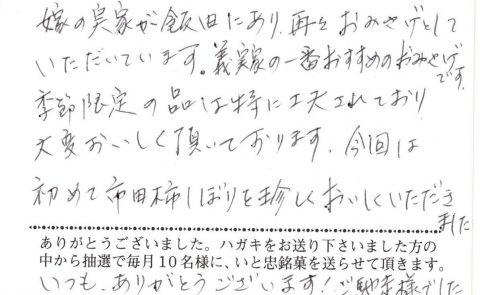 嫁の実家が飯田にあり、再々おみやげとして
いただいています。義実家の一番おすすめのおみやげです。
季節限定の品は特に工夫されており
大変おいしく頂いております。今回は
初めて市田柿しぼりを珍しくおいしくいただきました
ありがとうございました。ハガキをお送り下さいました方の
中から抽選で毎月10名様に、いと忠銘菓を送らせて頂きます。
いつも、ありがとうございます!ご馳走様でした